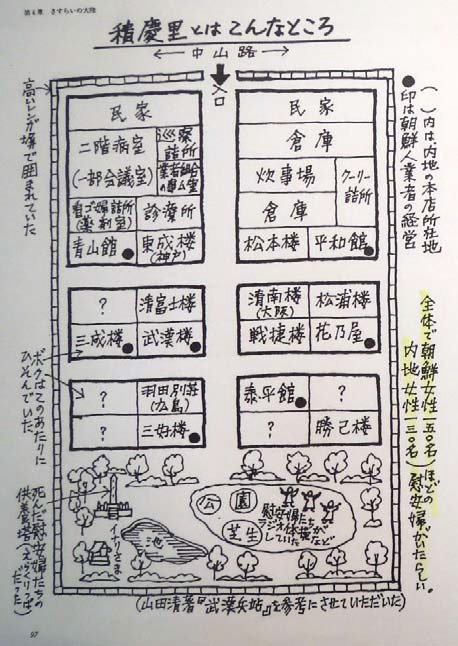 第4章 さすらいの大陸
積慶里とはこんなところ
← 中山路 →
入口
( )内は内地の本店所在地
●印は朝鮮人業者の経営
高いレンガ塀で囲まれていた
民家
二階病室
(一部会議室)
巡察
詰所
業者組合
の事ム室
看ゴ婦詰所
(薬剤室)
診療所
青山館●
東成楼
(神戸)
民家
倉庫
炊事場
クーリー
詰所
倉庫
松本楼
平和館●
?
清富士楼
三成楼●
武漢楼●
清南楼
(大阪)
松浦楼
戦捷楼
花乃屋●
?
羽田別荘
(広島)
?
三好楼●
泰平館●
?
?
勝己楼
ボクはこのあたりに
ひそんでいた
全体で朝鮮女性一五〇名
内地女性一三〇名
ほどの慰安婦がいたらしい。
公園
芝生
慰安婦たちが
ラジオ体操など
していた
池
イナリさま
死んだ慰安婦たちの
供養塔(えらくりっぱ
だった)
(山田清著『武漢兵站』を参考にさせていただいた)
97